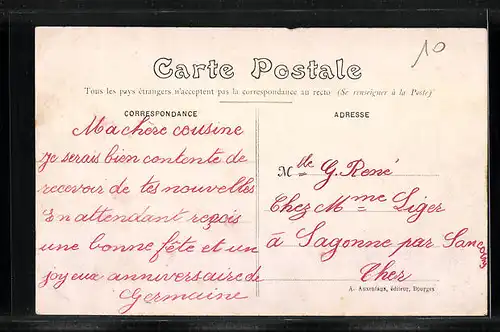 10
Carte Postale
Tous les pays étrangers n'acceptent pas la correspondance au recto (Se renseigner à la Poste)
CORRESPONDANCE
Ma chère cousine
je serais bien contente de
recevoir de tes nouvelles
En attendant reçois
une bonne fête et un
joyeux anniversaire de
Germaine
ADRESSE
Mlle G. René
Chez Mme Liger
à Sagonne par Sancoins
Cher
A. Auxenfans, éditeur, Bourges